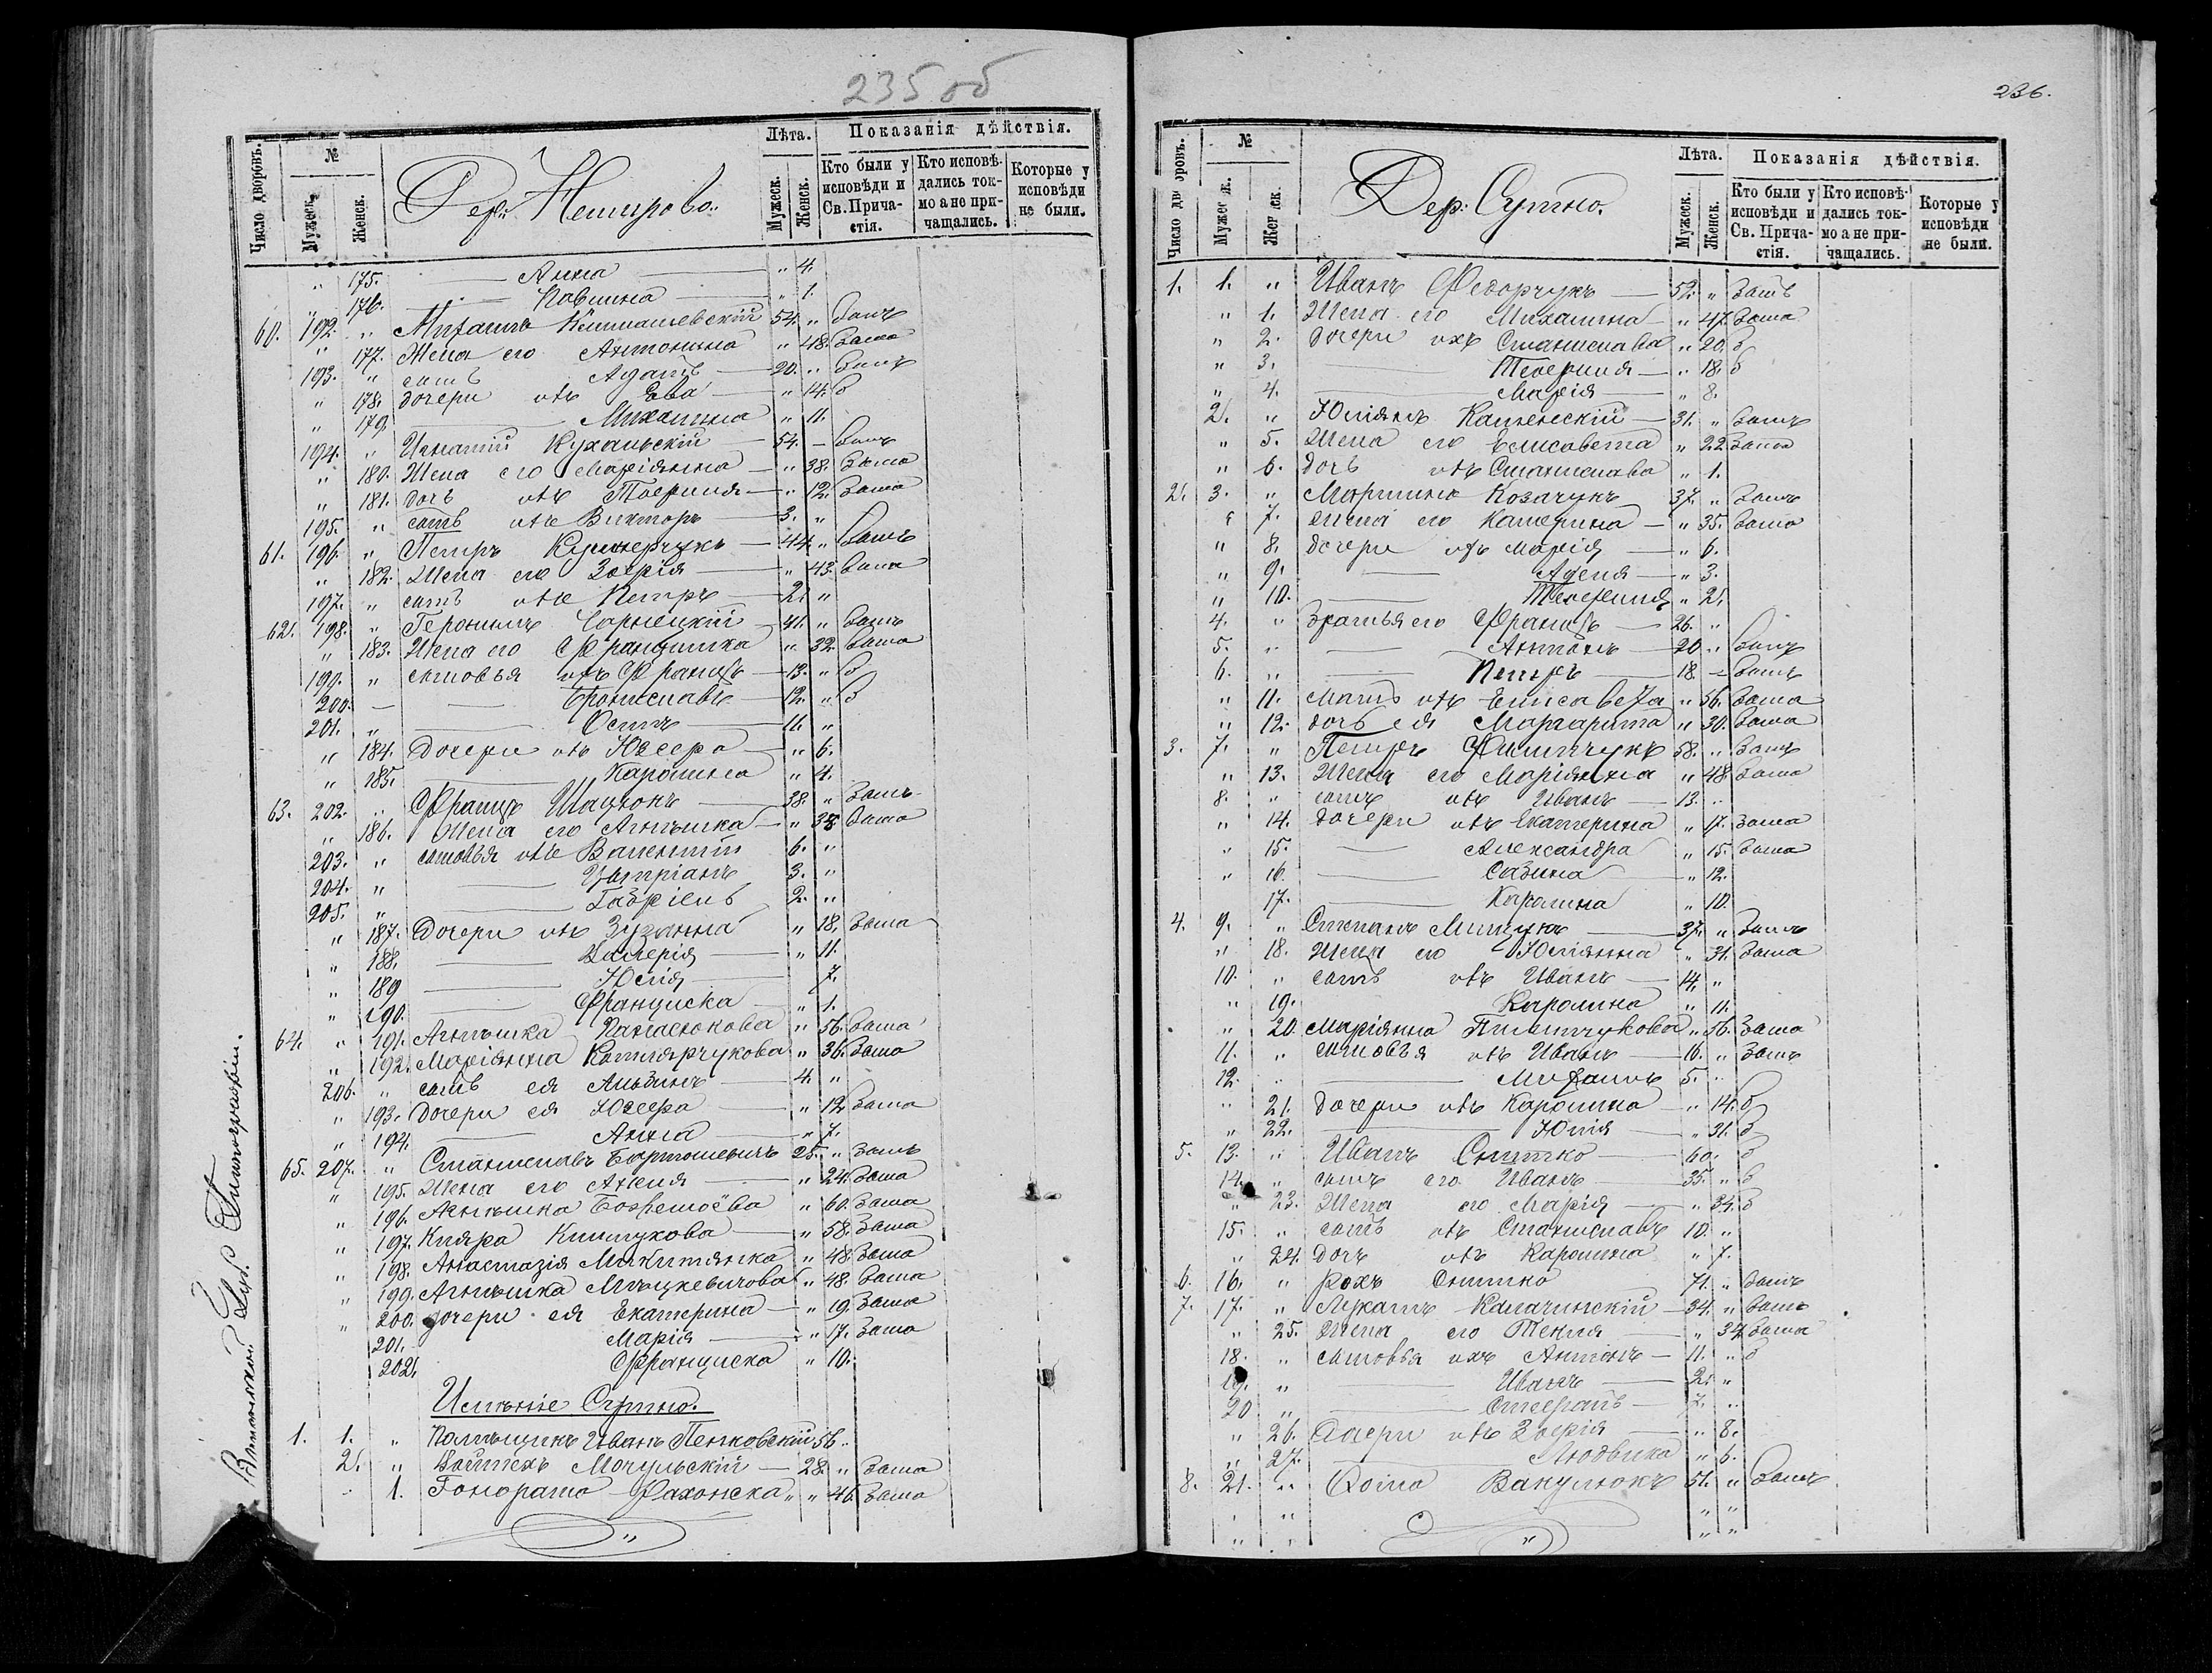 235 об
Число дворовъ.
№
Мужеск.
Женск.
Дер: Немирово.
Лѣта.
Мужеск.
Женск.
Показанія дѣйствія.
Кто были у исповѣди и Св. Причастія.
Кто исповѣдались токмо а не причащались.
Которые у исповѣди не были.
" 175. — Анна — " 4.
" 176. — Павлина — " 1.
60. 192. " Михаилъ 54. " былъ
" 177. Жена его Антонина " 48. была
193. " сынъ Адамъ — 20. " былъ
" 178. дочери ихъ Ева — " 14. б
" 179. — Михалина " 11.
194. " Игнатій Кухальскій — 54. - былъ
" 180. Жена его Маріянна — " 38. была
" 181. дочь ихъ Теофилія — " 12. была
195. " сынъ ихъ Викторъ — 3. "
61. 196. " Петръ Кушнерчукъ — 44. " былъ
" 182. Жена его Зофія — " 43. была
197. " сынъ ихъ Петръ — 2. "
62. 198. " Геронимъ Чарнецкій — 41. " былъ
" 183. Жена его Францишка " 32. была
199. " сыновья ихъ Францъ — 13. " б
200. — Брониславъ — 12. " б
201. " — Осипъ — 11. "
" 184. Дочери ихъ Юзефа — " 6.
" 185. — Каролина " 4.
63. 202. " Францъ Шацюкъ — 38. " былъ
" 186. Жена его Агнѣшка — " 38 была
203. " сыновья ихъ Валентій 6. "
204. " — Ципріанъ 3. "
205. " — Габріель 2. "
" 187. Дочери ихъ Зузанна " 18. была
" 188. — Валерія — " 11.
" 189 — Юлія — 7.
" 190. — Франциска — " 1.
64. " 191. Агнѣшка Панасюкова " 56. была
" 192. Маріянна Котлярчукова " 36. была
206. " сынъ ея Альбинъ — 4. "
" 193. Дочери ея Юзефа — " 12. была
" 194. — Анна — " 7.
65. 207. " Станиславъ Бартошевичъ 25. " былъ
" 195. Жена его Анеля — " 24. была
" 196. Агнѣшка " 60. была
" 197. Кляра Климукова — " 58. была
" 198. Анастазія Микитянка " 48. была
" 199. Агнѣшка Мицкевичова " 48. была
" 200. дочери ея Екатерина — " 19. была
201. Марія — " 17. была
202. Франциска " 10.
Имѣніе Сутно.
1. 1. " Помѣщикъ Иванъ Пенковскій 56. "
2. " Войтехъ Мочульскій — 28. " была
" 1. Гонората " 46. была
236.
Число дворовъ.
№
Мужеск.
Женск.
Дер: Сутно.
Лѣта.
Мужеск.
Женск.
Показанія дѣйствія.
Кто были у исповѣди и Св. Причастія.
Кто исповѣдались токмо а не причащались.
Которые у исповѣди не были.
1. 1. " Иванъ Федорчукъ — 52. " былъ
" 1. Жена его Михалина — " 47. была
" 2. дочери ихъ Станислава " 20. б
" 3. — Теофилія — " 18. б
" 4. — Марія — " 8.
2. " Юліянъ Каменскій — 31. " былъ
" 5. Жена его Елисавета " 22. была
" 6. дочь ихъ Станислава " 1.
2. 3. " Мартинъ Козачукъ 37. " былъ
" 7. жена его Катерина — " 35. была
" 8. дочери ихъ Марія — " 6.
" 9. — Аделя — " 3.
" 10. — Теофилія " 2.
4. " братья его Францъ — 26. "
5. " — Антонъ — 20. " былъ
6. " — Петръ — 18. - былъ
" 11. мать ихъ Елисавета " 56. была
" 12. дочь ея Маргарита " 30. была
3. 7. " Петръ Филипчукъ 58. " былъ
" 13. Жена его Маріянна " 48. была
8. " сынъ ихъ Иванъ — 13. "
" 14. дочери ихъ Екатерина " 17. была
" 15. — Александра " 15. была
" 16. — Сабина — " 12.
17. — Каролина " 10.
4. 9. " Степанъ Мищукъ — 37. " былъ
" 18. Жена его Юліянна " 31. была
10. " сынъ ихъ Иванъ — 14. "
" 19. Каролина " 11.
" 20. Маріянна Пилипчукова " 56. была
11. " сыновья ихъ Иванъ — 16. " былъ
12. " — Михаилъ 5. "
" 21. дочери ихъ Каролина — " 14. б
" 22. — Юлія — " 31. б
5. 13. " Иванъ Снитко — 60. " б
14. " сынъ его Иванъ — 35. " б
" 23. Жена его Марія — " 34. б
15. " сынъ ихъ Станиславъ 10. "
" 24. дочь ихъ Каролина " 7.
6. 16. " Рохъ Снитко 71. " былъ
7. 17. " Лукашъ Калачинскій — 34. " былъ
" 25. Жена его Текля — " 34. была
18. " сыновья ихъ Антонъ — 11. " б
19. " — Иванъ — 2. "
20 " — Стефанъ — 7. "
" 26. дочери ихъ Зофія — " 8.
" 27. — Людвика " 6.
8. 21. " Фома Вакулюкъ 51. " былъ